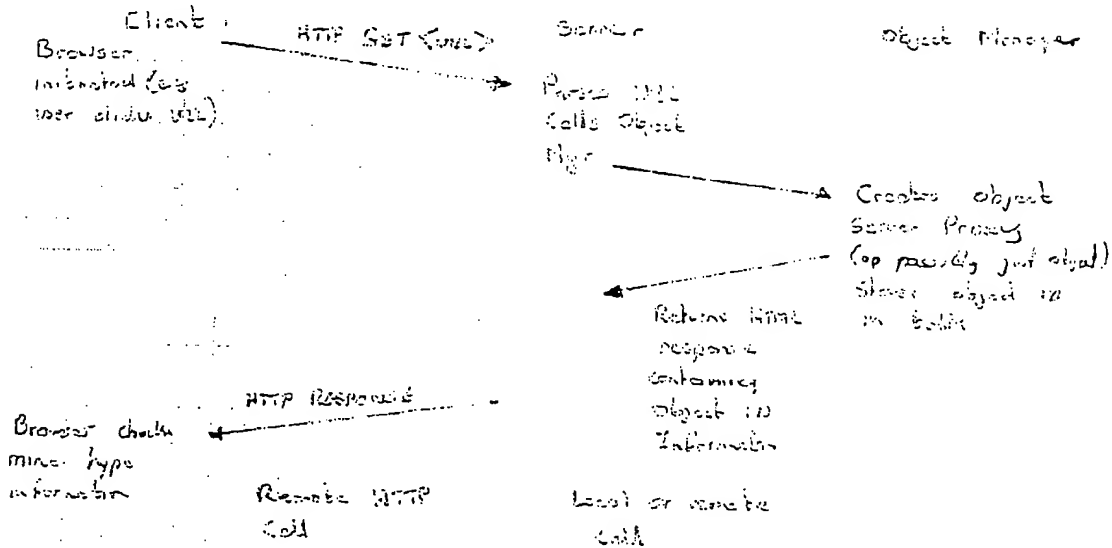 Client
HTTP GET <URL>
Server
Object Manager
Browser
user clicks URL)
Parses URL
Calls Object
Mgr
Creates object
Server Proxy
(or possibly just object)
Stores object ID
in table
Returns HTML
response
containing
Object ID
Information
HTTP RESPONSE
Browser checks
mime type
information
Remote HTTP
Call
Local or remote
Call